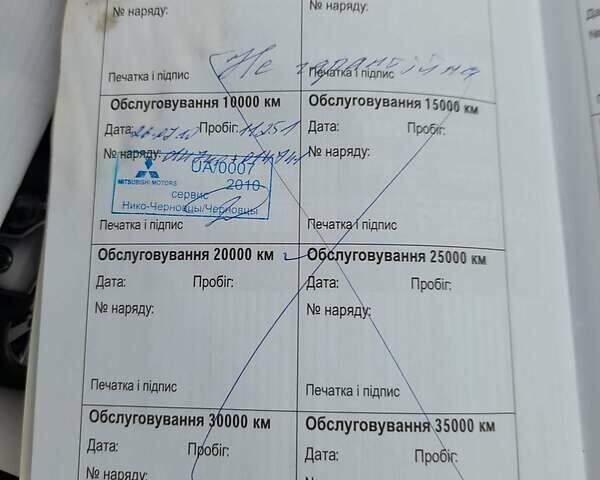 № наряду:
№ наряду:
Не гарантійна
Печатка і підпис
Печатка і підпис
Обслуговування 10000 км
Обслуговування 15000 км
Дата:
Пробіг: 11251
Дата:
Пробіг:
№ наряду:
№ наряду:
UA/0007
MITSUBISHI MOTORS
2010
сервис
Нико-Черновцы/Черновцы
Печатка і підпис
Печатка і підпис
Обслуговування 20000 км
Обслуговування 25000 км
Дата:
Пробіг:
Дата:
Пробіг:
№ наряду:
№ наряду:
Печатка і підпис
Печатка і підпис
Обслуговування 30000 км
Обслуговування 35000 км
Дата:
Пробіг:
Дата:
Пробіг:
№ наряду:
№ наряду: